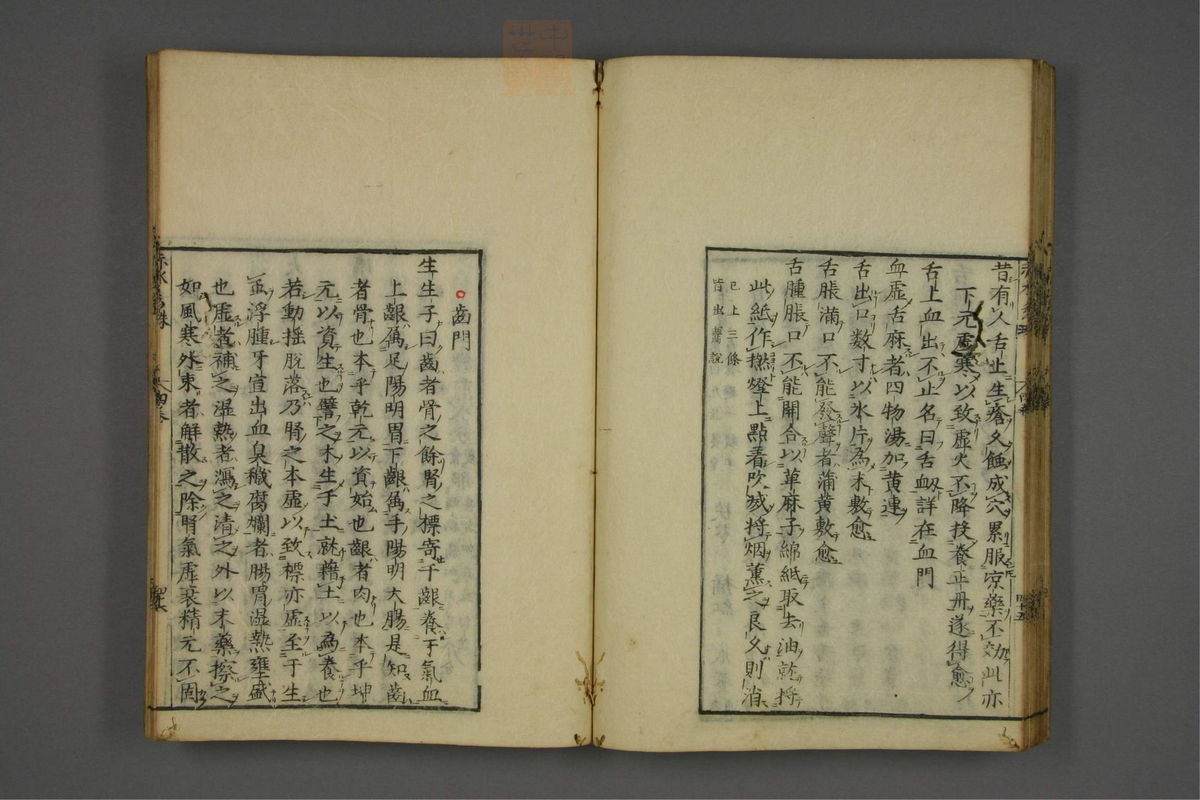 昔有人舌上生瘡久蝕成穴累服凉藥不効此亦
下元虛寒以致虛火不降投養正丹遂得愈
舌上血出不止名曰舌衂詳在血門
血虛舌麻者四物湯加黄連
舌出口數寸以氷片為末敷愈
舌脹滿口不能發聲者蒲黄敷愈
舌腫脹口不能開合以萆麻子綿紙取去油乾捋
此紙作撚燈上點着吹滅捋烟薰之良久則消
已上三條
皆出醫說
齒門
生生子曰齒者骨之餘腎之標寄于齦養于氣血
上齦爲足陽明胃下齦爲手陽明大腸是知齒
者骨也本乎乾元以資始也齦者肉也本乎坤
元以資生也譬之木生于土就藉土以為養也
若動搖脫落乃腎之本虛以致標亦虛至于生
疋浮腫牙宣出血臭穢腐爛者腸胃濕熱壅盛
也虛者補之濕熱者瀉之清之外以末藥擦之
如風寒外束者解散之除腎氣虛衰精元不固